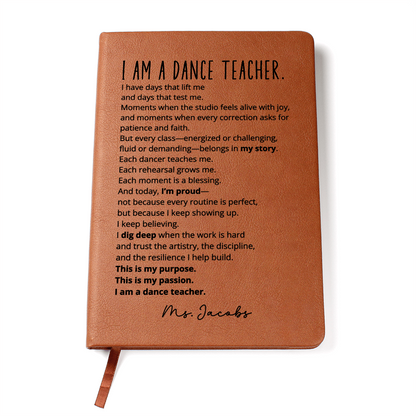 I AM A DANCE TEACHER.
I have days that lift me
and days that test me.
Moments when the studio feels alive with joy,
and moments when every correction asks for
patience and faith.
But every class—energized or challenging,
fluid or demanding—belongs in my story.
Each dancer teaches me.
Each rehearsal grows me.
Each moment is a blessing.
And today, I'm proud—
not because every routine is perfect,
but because I keep showing up.
I keep believing.
I dig deep when the work is hard
and trust the artistry, the discipline,
and the resilience I help build.
This is my purpose.
This is my passion.
I am a dance teacher.
Ms. Jacobs